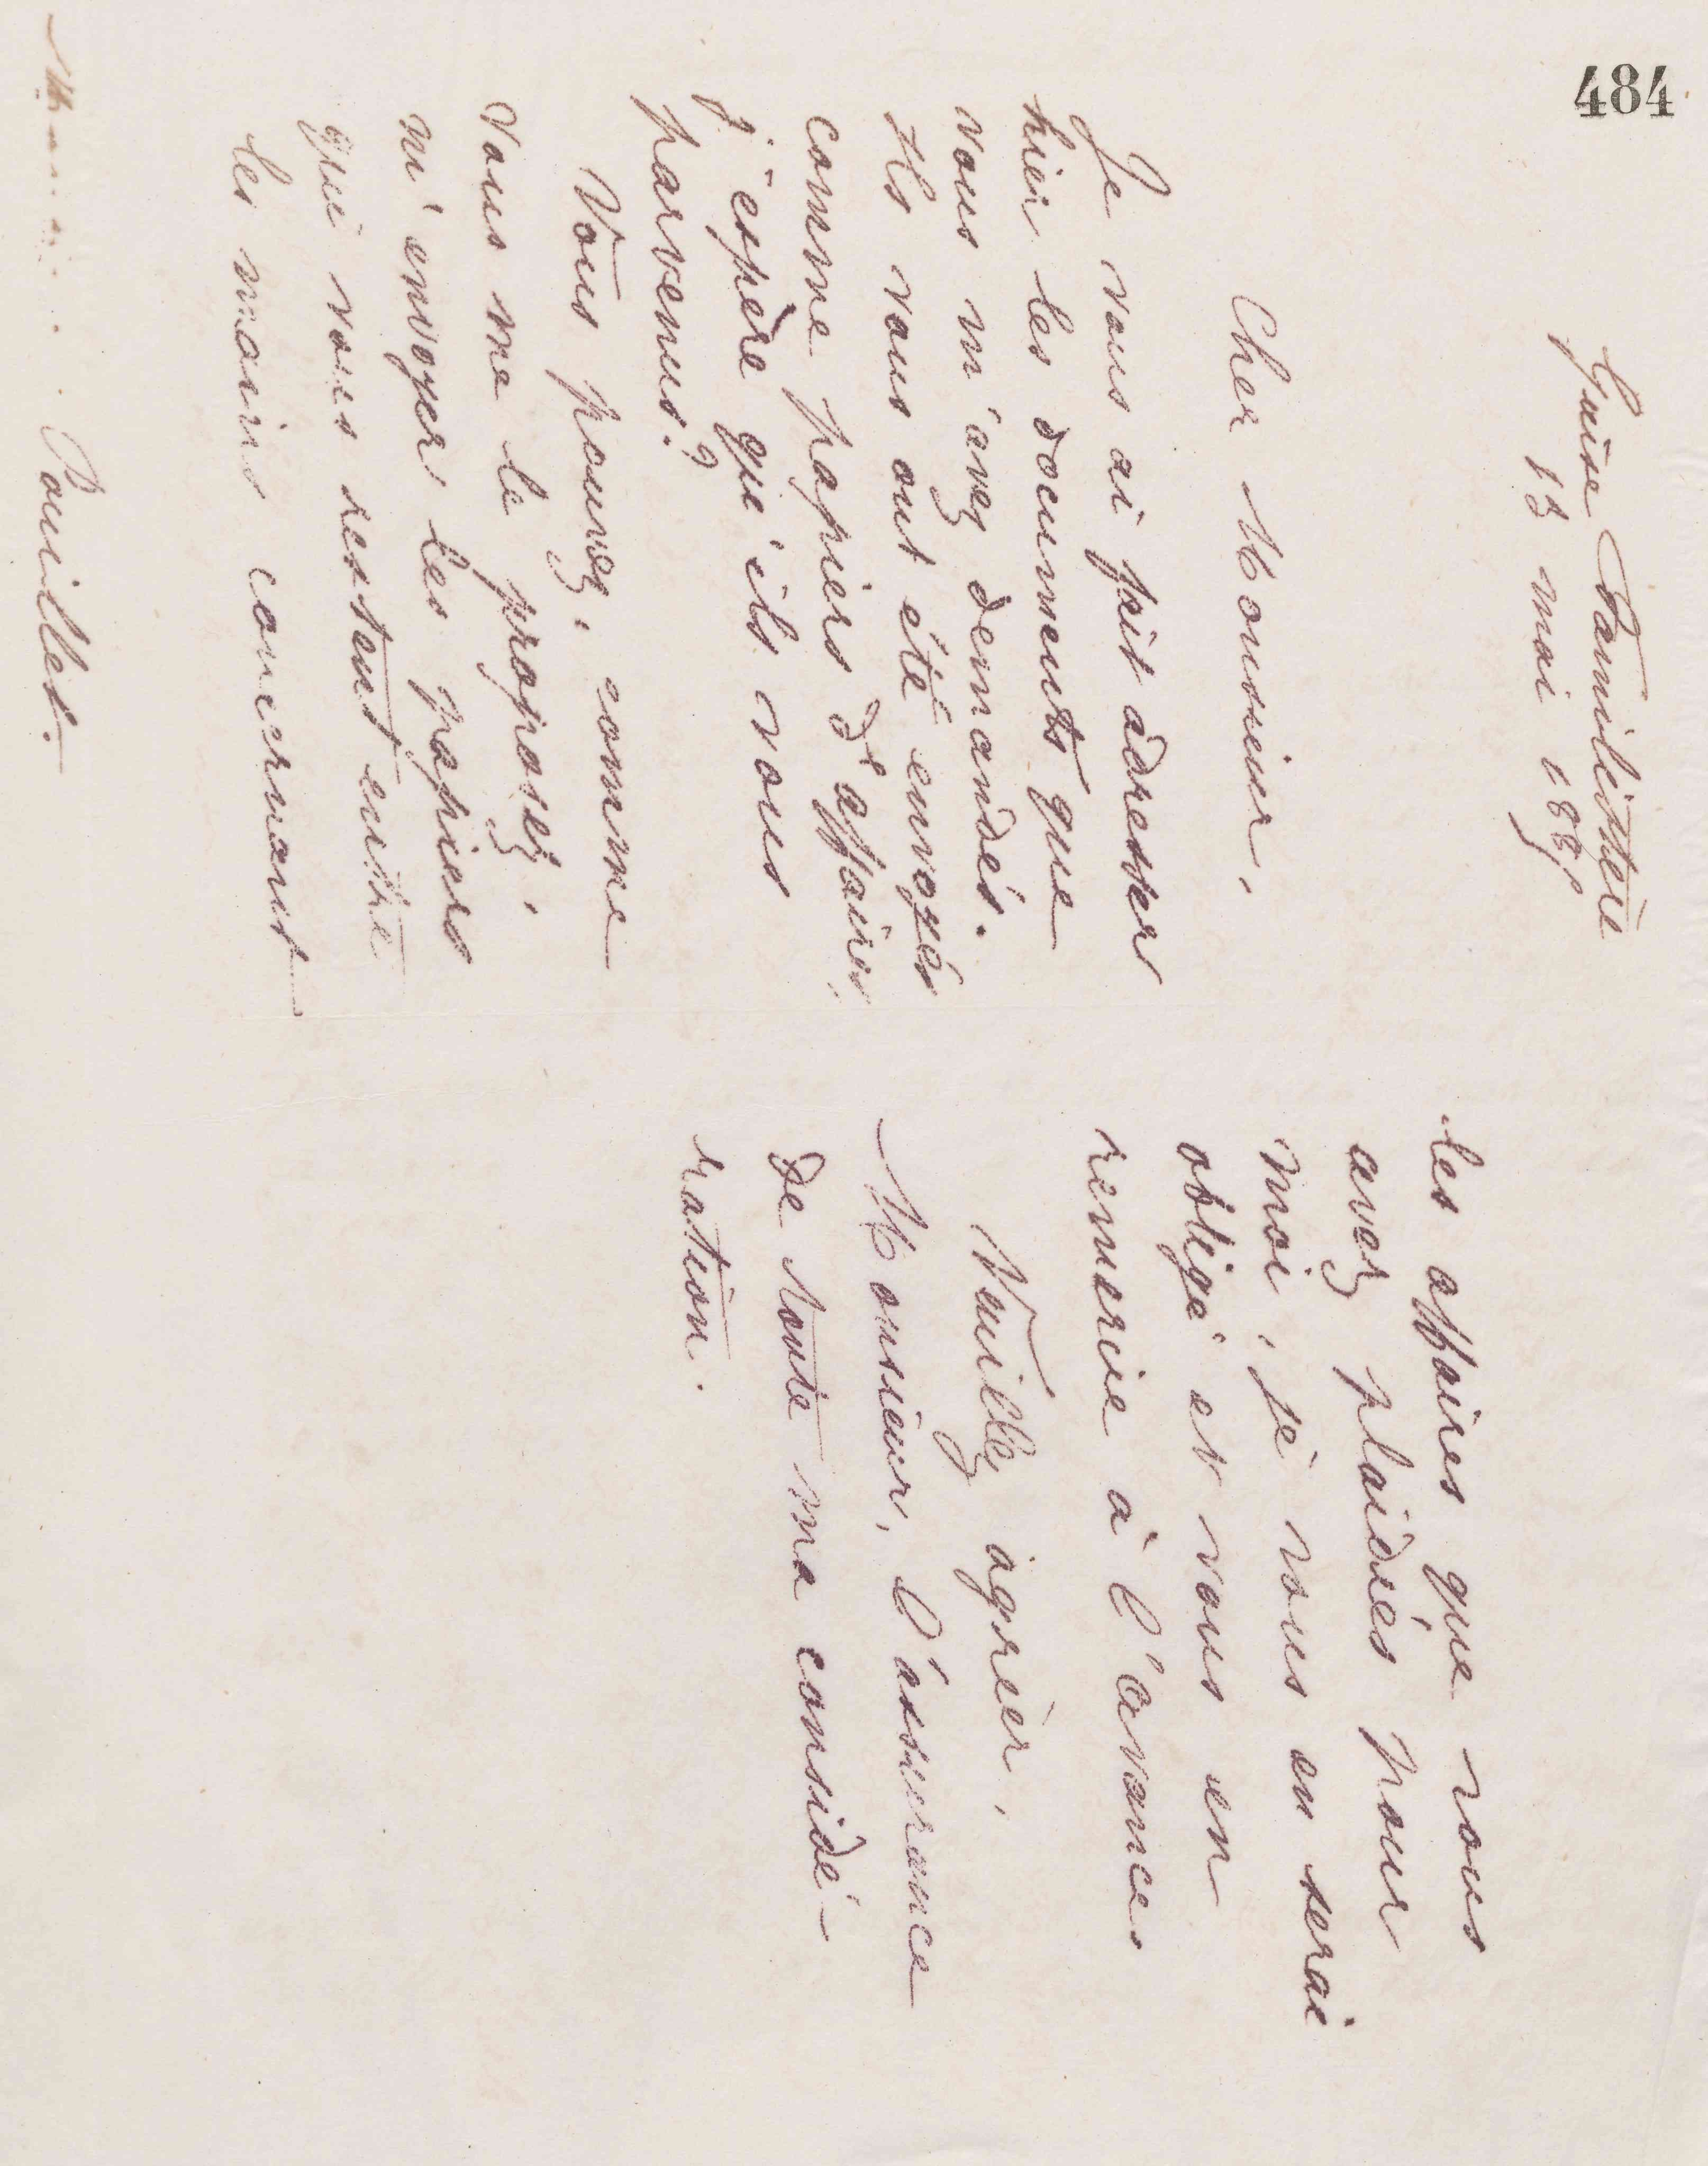 484
Guise Familistère
13 mai 1889
Cher Monsieur,
Je vous ai fait adresser
hier les documents que
vous m'avez demandés.
Ils vous ont été envoyés
comme papiers d'affaires,
j'espère qu'ils vous
parvenus?
Vous pouvez, comme
vous me le proposez,
m'envoyer les papiers
qui vous restent entre
les mains concernant
Pouillet.
les affaires que vous
avez plaidées pour
moi, je vous en serai
obligé et vous en
remercie à l'avance.
Veuillez agréer,
Monsieur, l'assurance
de toute ma considé-
ration.